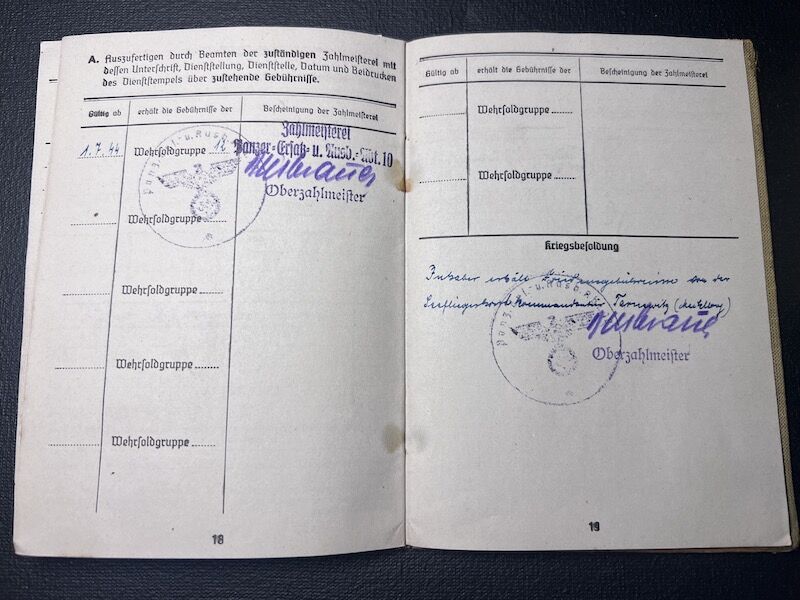 A. Auszufertigen durch Beamten der zuständigen Zahlmeisterei mit
dessen Unterschrift, Dienststellung, Dienststelle, Datum und Beidrucken
des Dienststempels über zustehende Gebührnisse.
Gültig ab erhält die Gebührnisse der Bescheinigung der Zahlmeisterei
1.7.44 Wehrsoldgruppe 12
Zahlmeisterei
Panzer-Ersatz- u. Ausb.-Abt. 10
Oberzahlmeister
Wehrsoldgruppe
Wehrsoldgruppe
Wehrsoldgruppe
Wehrsoldgruppe
18
Gültig ab erhält die Gebührnisse der Bescheinigung der Zahlmeisterei
Wehrsoldgruppe
Wehrsoldgruppe
Kriegsbesoldung
Inhaber erhält Friedensgebührnisse von der
Kommandantur Tarnewitz
Oberzahlmeister
19